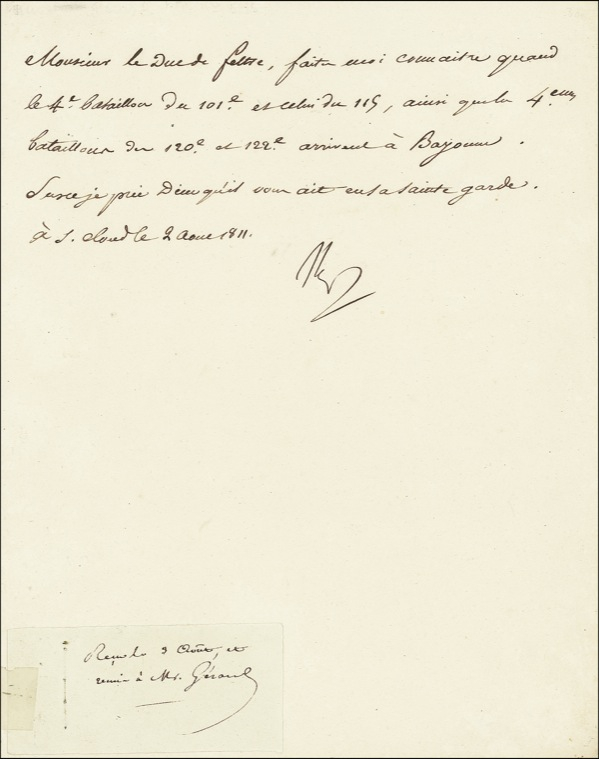 Monsieur le Duc de feltre, faites moi connaitre quand
le 4.e bataillon du 101.e et celui du 115, ainsi que les 4.emes
bataillons des 120.e et 122.e arrivent à Bayonne.
Sur ce je prie Dieu qu'il vous ait en sa sainte garde.
à S. Cloud le 2 aout 1811.
Np
Reçu le 3 Août, et
remis à Mr. Gérard